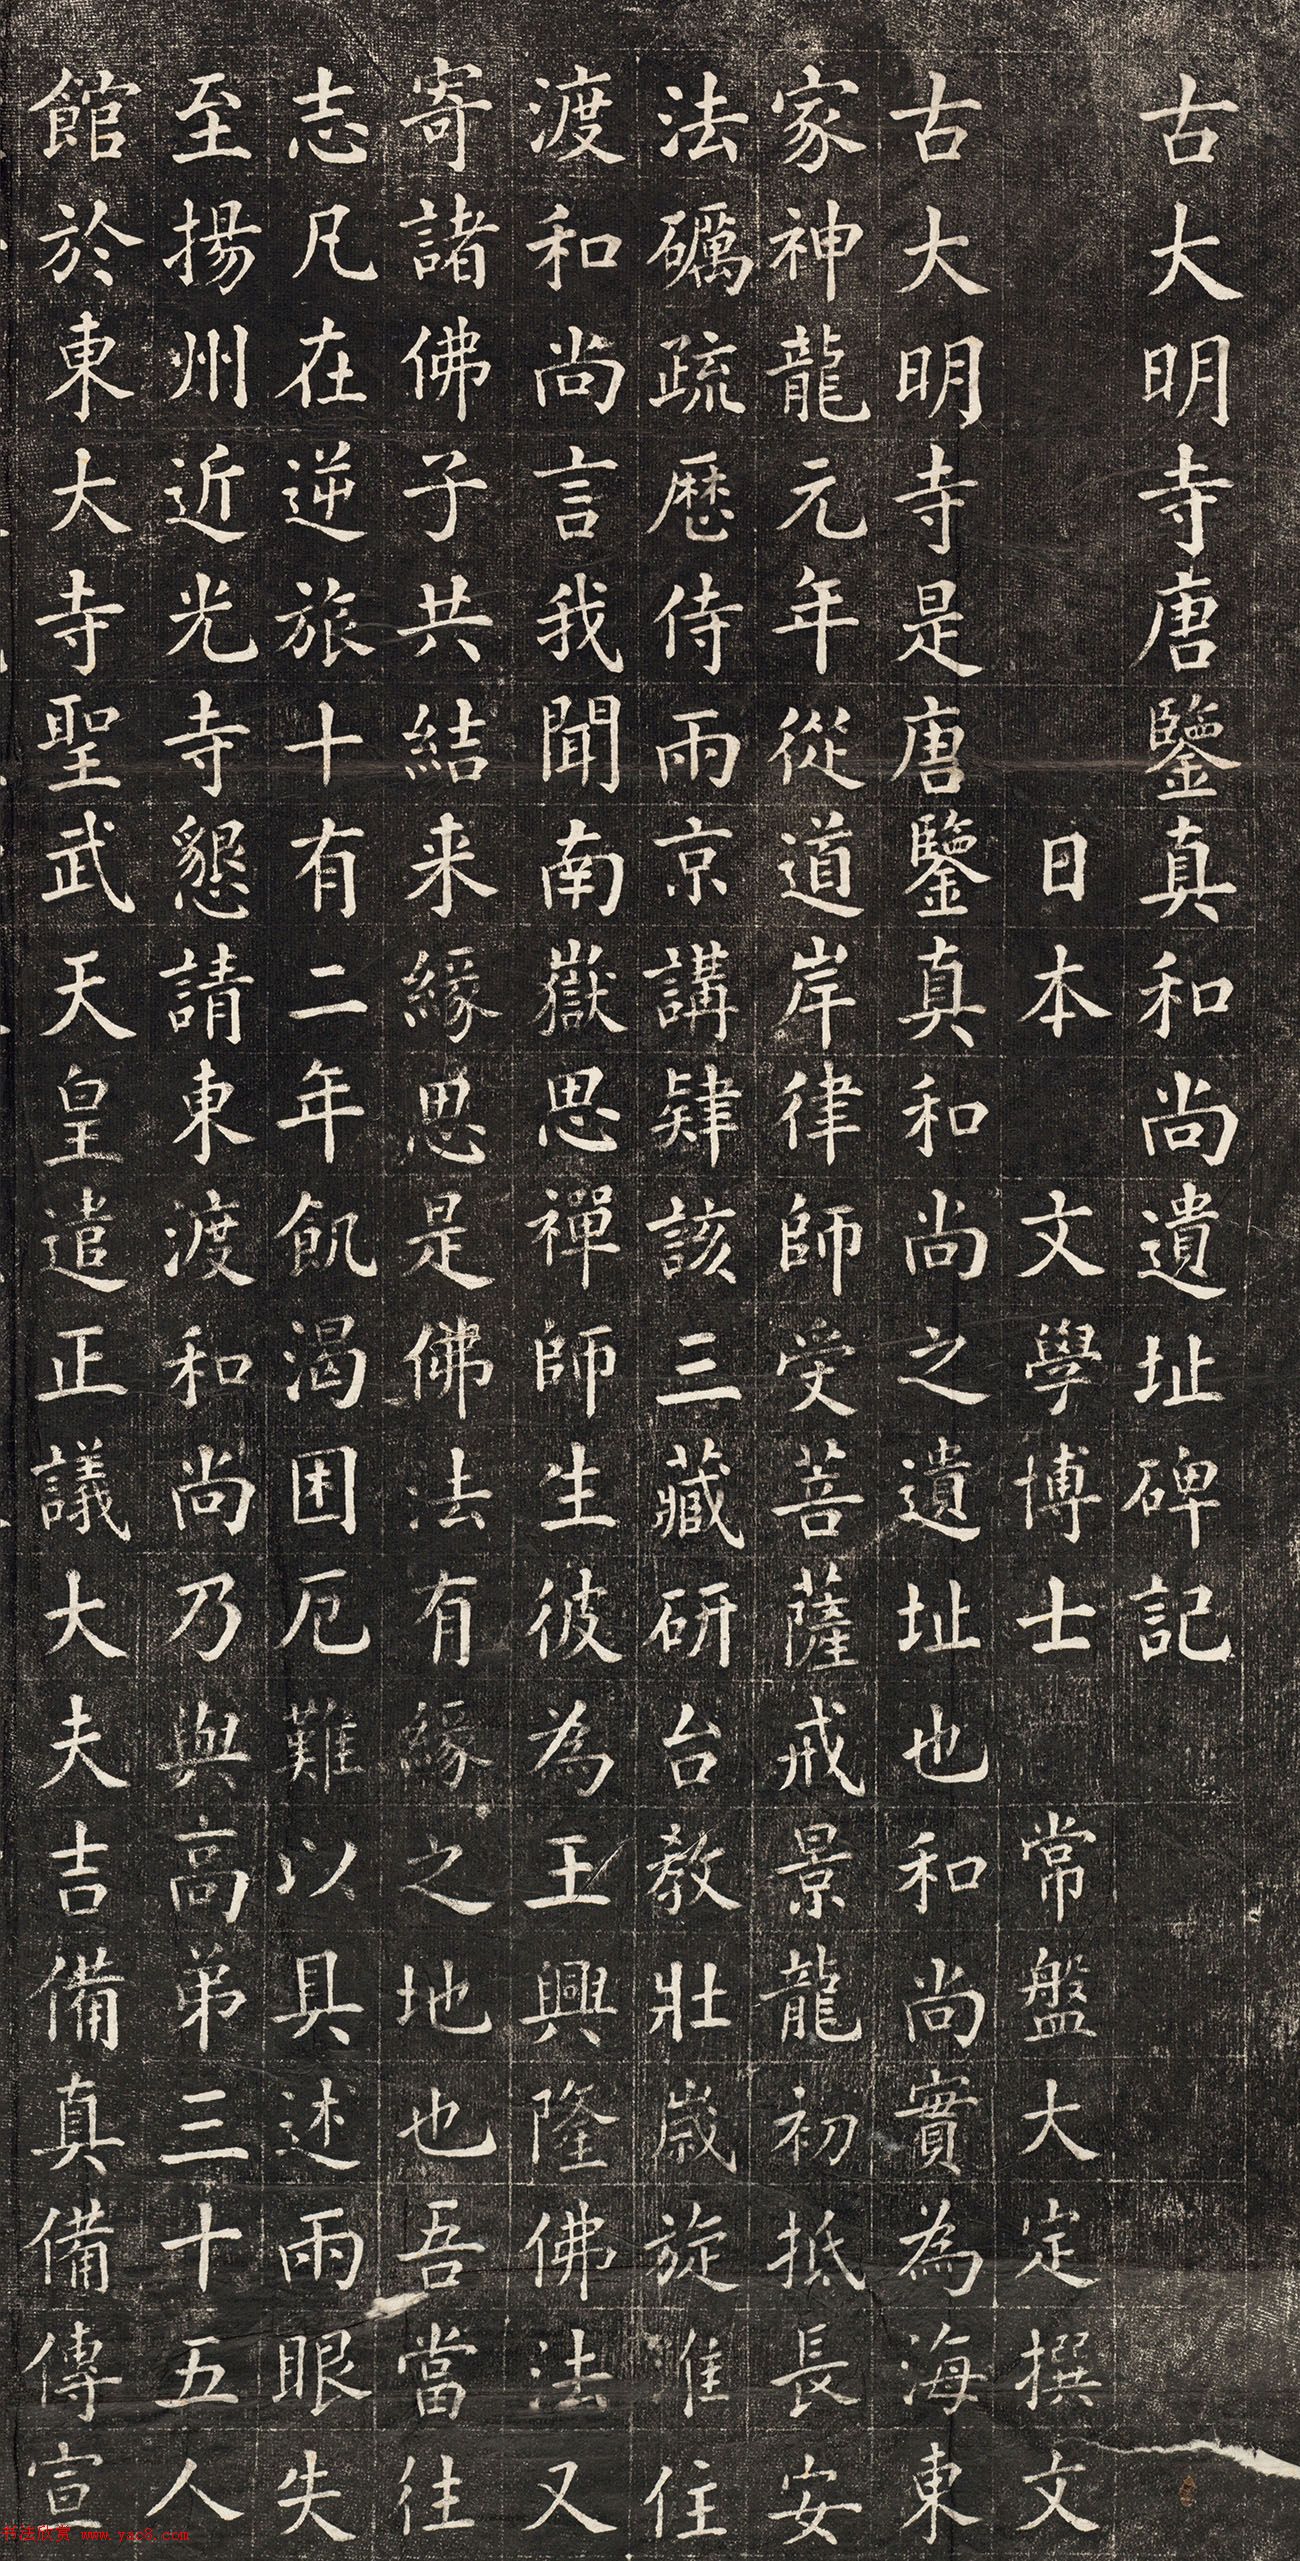 古大明寺唐鑒真和尚遺址碑記
日本 文學博士 常盤大定撰文
古大明寺是唐鑒真和尚之遺址也和尚實為海東
家神龍元年從道岸律師受菩薩戒景龍初抵長安
法礪疏歷侍兩京講肄該三藏研台教壯歲旋淮住
渡和尚言我聞南嶽思禪師生彼為王興隆佛法又
寄諸佛子共結来緣思是佛法有緣之地也吾當往
志凡在逆旅十有二年飢渴困厄難以具述兩眼失
至揚州近光寺懇請東渡和尚乃與高弟三十五人
館於東大寺聖武天皇遣正議大夫吉備真備傳宣
书法欣赏 www.yac8.com